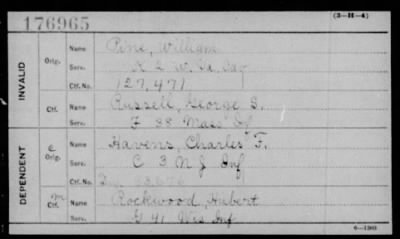 176965
(3-H-4)
INVALID
Orig.
Name Pine, William
Serv. K 2 W. Va. Cav
Ctf. No. 127,471
Ctf.
Name Russell, George S.
Serv. F 38 Mass Inf
DEPENDENT
C Orig.
Name Havens, Charles F.
Serv. C 3 N J Inf
Ctf. No.
m Ctf.
Name Rockwood, Hubert
Serv. G 41 Wis Inf